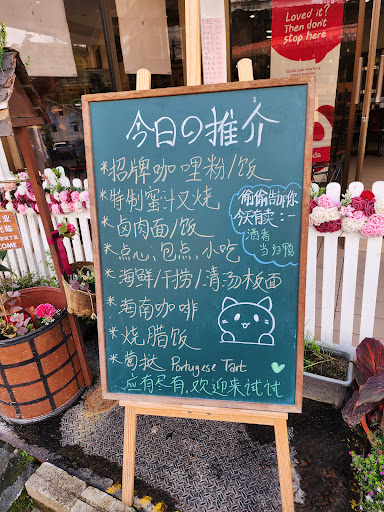 Loved it?
Then don't
stop here
今日の推介
*招牌咖哩粉/饭
*特制蜜汁叉烧
*卤肉面/饭
*点心,包点,小吃
*海鲜/干捞/清汤板面
*海南咖啡
*烧.腊饭
*葡挞 Portugese Tart
应有尽有,欢迎来试试
偷偷告诉你
今天有卖:-
酒者
当归鸭